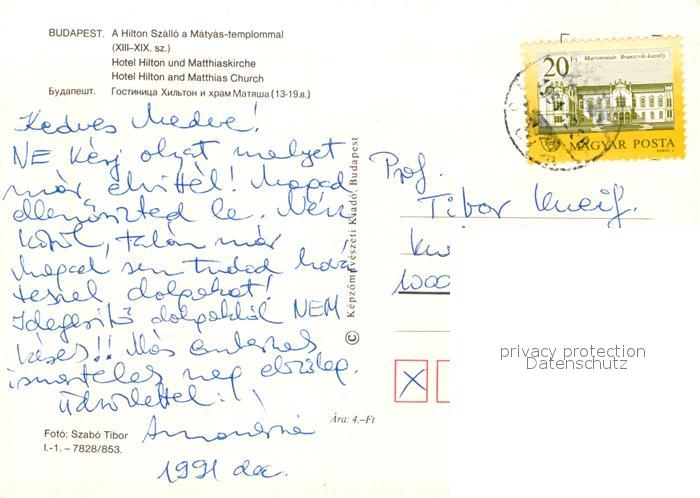 BUDAPEST. A Hilton Szálló a Mátyás-templommal
(XIII–XIX. sz.)
Hotel Hilton und Matthiaskirche
Hotel Hilton and Matthias Church
Будапешт. Гостиница Хильтон и храм Матяша (13-19.в.)
Kedves Medve!
NE kérj olyat melyet
már elvittél! Magad
ellenőrizted le. Nem
közöl, talán már
magad sem tudod hová
teszel dolgokat!
Idegesítő dolgokból NEM
kérek!! Más
ismételes meg előzőleg.
Üdvözlettel:
1991 dec.
Fotó: Szabó Tibor
I.-1. – 7828/853.
Ára: 4.–Ft
© Képzőművészeti Kiadó, Budapest
20 Ft Martonvásár. Brunszvik-kastély
MAGYAR POSTA
Prof.
Tibor Kneif.
1000
privacy protection
Datenschutz